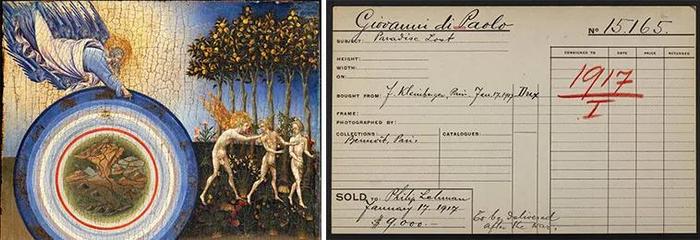 Giovanni di Paolo
Nº 15165.
SUBJECT: Paradise Lost
HEIGHT:
WIDTH:
ON:
BOUGHT FROM: F. Kleinberger, Paris. Jan. 17. 1917
FRAME:
PHOTOGRAPHED BY:
COLLECTIONS: CATALOGUES:
Benoit, Paris.
CONSIGNED TO DATE PRICE RETURNED
1917
I
SOLD TO: Philip Lehman
January 17. 1917
$9,000.—
To be delivered
after the war.